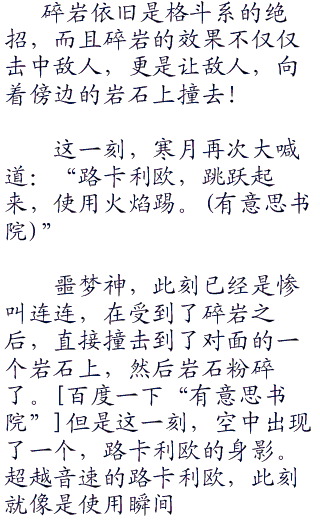 碎岩依旧是格斗系的绝
招，而且碎岩的效果不仅仅
击中敌人，更是让敌人，向
着傍边的岩石上撞去！
这一刻，寒月再次大喊
道：“路卡利欧，跳跃起
来，使用火焰踢。(有意思书
院)”
噩梦神，此刻已经是惨
叫连连，在受到了碎岩之
后，直接撞击到了对面的一
个岩石上，然后岩石粉碎
了。[百度一下“有意思书
院”]但是这一刻，空中出现
了一个，路卡利欧的身影。
超越音速的路卡利欧，此刻
就像是使用瞬间